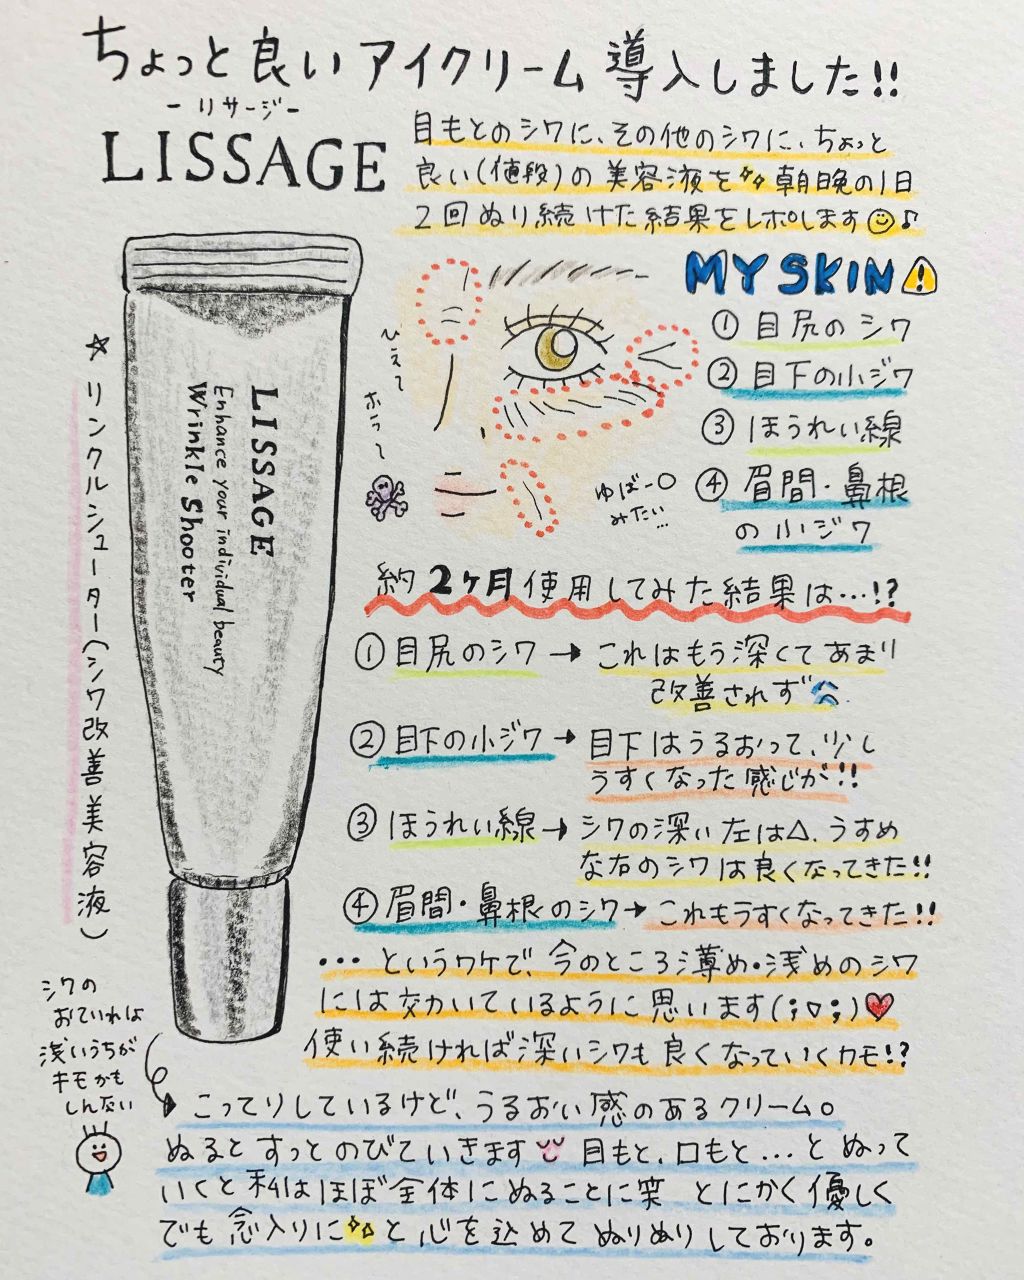 ちょっと良いアイクリーム導入しました!!
ーリサージー
LISSAGE
目もとのシワに、その他のシワに、ちょっと
良い(値段)の美容液を朝晩の1日
2回ぬり続けた結果をレポします♪
MY SKIN
① 目尻のシワ
② 目下の小ジワ
③ ほうれい線
④ 眉間・鼻根
の小ジワ
ひえて
おっ〜
ゆばーロ
みたい…
★ リンクルシューター(シワ改善美容液)
LISSAGE
Enhance your individual beauty
Wrinkle Shooter
約2ヶ月使用してみた結果は…!?
① 目尻のシワ → これはもう深くてあまり
改善されず
② 目下の小ジワ → 目下はうるおって、少し
うすくなった感じが!!
③ ほうれい線 → シワの深い左は△、うすめ
な右のシワは良くなってきた!!
④ 眉間・鼻根のシワ → これもうすくなってきた!!
… というワケで、今のところ薄め・浅めのシワ
には効いているように思います(;▽;)♥
使い続ければ深いシワも良くなっていくカモ!?
シワの
おていれは
浅いうちが
キモかも
しんない
こってりしているけど、うるおい感のあるクリーム。
ぬるとすっとのびていきます 目もと、口もと…とぬって
いくと私はほぼ全体にぬることに笑 とにかく優しく
でも念入りにと心を込めてぬりぬりしております。